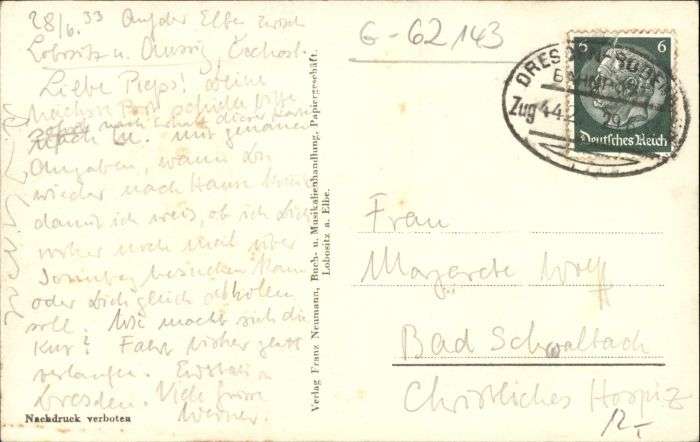 28/6.33 Auf der Elbe zwisch
Lobositz u. Aussig, Čechosl.
Liebe Pieps! Deine
nächste Post schicke bitte
nach
mit genauer
Angaben, wann Du
wieder nach Hause
damit ich weiß, ob ich Dich
vorher noch mal über
besuchen kann
oder Dich gleich abholen
soll. Wie macht sich die
Kur? Fahrt bisher glatt
verlaufen. Endstation
Dresden. Viele Grüsse
Werner.
Nachdruck verboten
Verlag Franz Neumann, Buch- u. Musikalienhandlung, Papiergeschäft.
Lobositz a. Elbe.
G-62143
6 6
Deutsches Reich
DRESDEN
Zug 44
Frau
Margarete Wolff
Bad Schwalbach
Christliches Hospiz
12,-